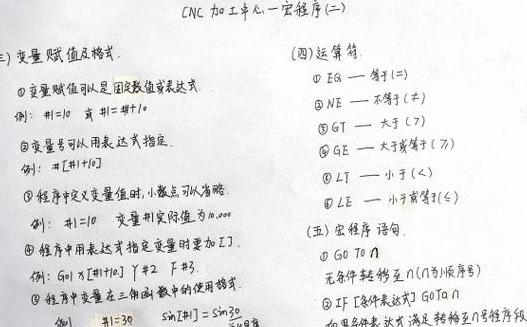 CNC 加工中心一宏程序(二)
三) 变量赋值及格式.
①变量赋值可以是固定数值或表达式.
例: #1=10 或 #1=#1+10
②变量号可以用表达式指定.
例: #[#1+10]
③程序中定义变量值时,小数点可以省略.
例: #1=10 变量#1实际值为10.000
④程序中用表达式指定变量时要加[].
例: G01 X[#1+10.] Y#2 F#3.
⑤程序中变量在三角函数中的使用格式.
例 #1=30 sin[#1]=sin30
(四)运算符.
① EQ — 等于(=)
② NE — 不等于(≠)
③ GT — 大于(>)
④ GE — 大于或等于(≥)
⑤ LT — 小于(<)
⑥ LE — 小于或等于(≤)
(五) 宏程序语句.
① GO TO n
无条件转移至n(n为顺序号)
② IF [条件表达式] GOTO n
如果条件表达式满足转移至n号程序段